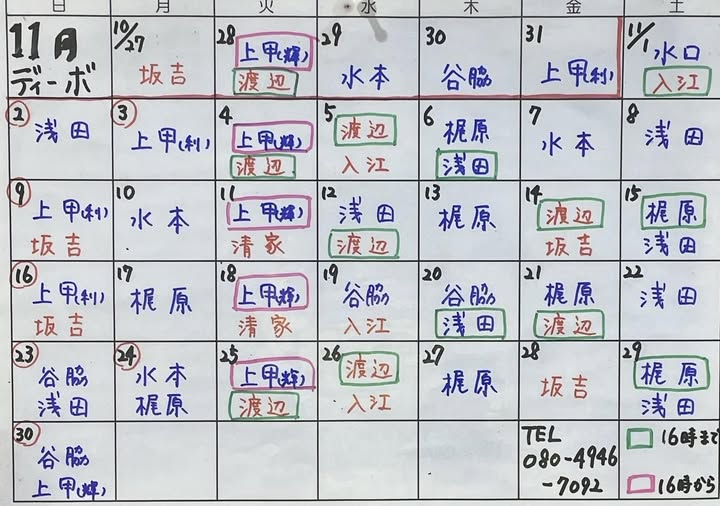 日 月 火 水 木 金 土
11月
ディーボ
10/27
坂吉
28
上甲(輝)
渡辺
29
水本
30
谷脇
31
上甲(利)
11/1
水口
入江
2
浅田
3
上甲(利)
4
上甲(輝)
渡辺
5
渡辺
入江
6
梶原
浅田
7
水本
8
浅田
9
上甲(利)
坂吉
10
水本
11
上甲(輝)
清家
12
浅田
渡辺
13
梶原
14
渡辺
坂吉
15
梶原
浅田
16
上甲(利)
坂吉
17
梶原
18
上甲(輝)
清家
19
谷脇
入江
20
谷脇
浅田
21
梶原
渡辺
22
浅田
23
谷脇
浅田
24
水本
梶原
25
上甲(輝)
渡辺
26
渡辺
入江
27
梶原
28
坂吉
29
梶原
浅田
30
谷脇
上甲(輝)
TEL
080-4946
-7092
16時まで
16時から